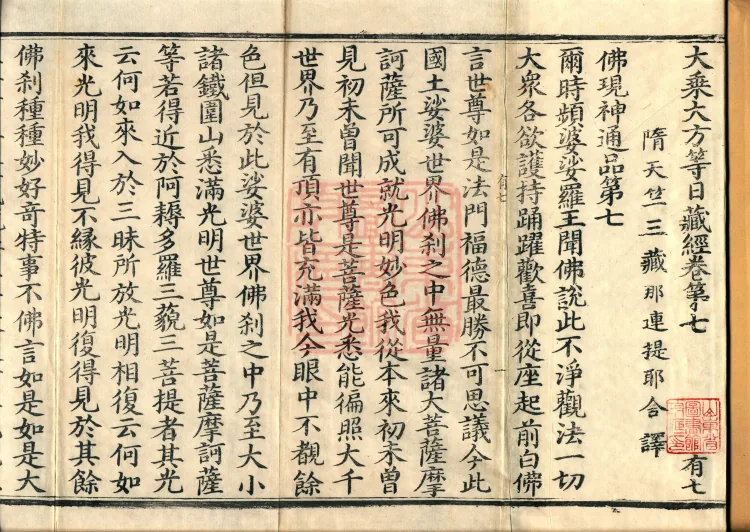 大乘大方等日藏經卷第七
有七
隋天竺三藏那連提耶舍譯
佛現神通品第七
爾時頻婆娑羅王聞佛說此不淨觀法一切
大衆各欲護持踊躍歡喜即從座起前白佛
有七
言世尊如是法門福德最勝不可思議今此
一
國土娑婆世界佛剎之中無量諸大菩薩摩
訶薩所可成就光明妙色我從本來初未曾
見初未曾聞世尊是菩薩光悉能徧照大千
世界乃至有頂亦皆充滿我今眼中不觀餘
色但見於此娑婆世界佛剎之中乃至大小
諸鐵圍山悉滿光明世尊如是菩薩摩訶薩
等若得近於阿耨多羅三藐三菩提者其光
云何如來入於三昧所放光明相復云何如
來光明我得見不緣彼光明復得見於其餘
佛剎種種妙好奇特事不佛言如是如是大